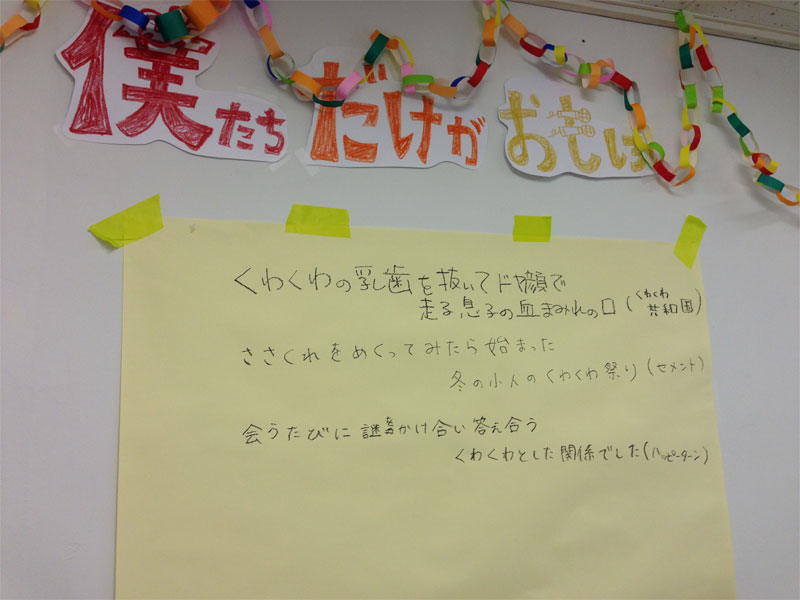 僕たち だけが おもしろ
くわくわの乳歯を抜いてドヤ顔で
走る息子の血まみれの口(くわくわ共和国)
ささくれをめくってみたら始まった
冬の小人のくわくわ祭り(セメント)
会うたびに謎かけ合い答え合う
くわくわとした関係でした(ハッピーターン)